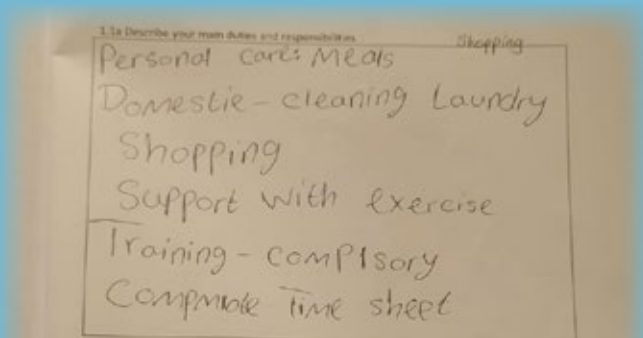 1.1a Describe your main duties and responsibilities
Shopping
Personal care: Meals
Domestie - cleaning Laundry
Shopping
Support with exercise
Training - complsory
Time sheet